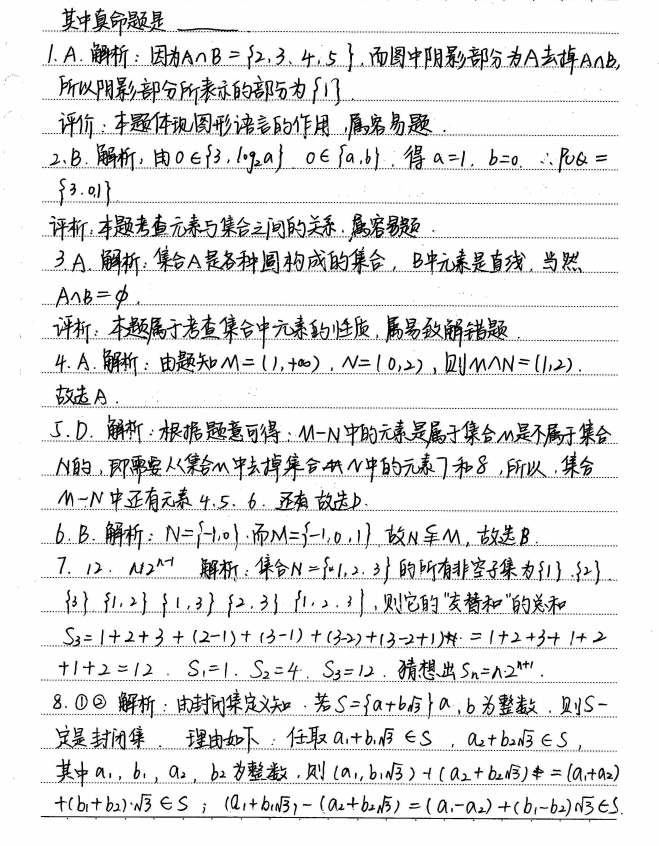 其中真命题是 ______
1. A. 解析：因为A∩B={2,3,4,5}，而图中阴影部分为A去掉A∩B,
所以阴影部分所表示的部分为{1}.
评价：本题体现图形语言的作用，属容易题.
2. B. 解析：由0∈{3, log₂a} 0∈{a,b}，得a=1, b=0. ∴P∪Q=
{3,0,1}
评析：本题考查元素与集合之间的关系，属容易题.
3. A. 解析：集合A是各种圆构成的集合，B中元素是直线，当然
A∩B=∅.
评析：本题属于考查集合中元素的性质，属易致解错题.
4. A. 解析：由题知M=(1,+∞), N=(0,2), 则M∩N=(1,2).
故选A.
5. D. 解析：根据题意可得：M-N中的元素是属于集合M是不属于集合
N的，即需要从集合M中去掉集合N中的元素7和8，所以，集合
M-N中还有元素4.5.6. 还有 故选D.
6. B. 解析：N={-1,0}.而M={-1,0,1} 故N⫋M, 故选B.
7. 12. n2ⁿ⁻¹ 解析：集合N={1,2,3}的所有非空子集为{1}.{2}.
{3} {1,2} {1,3} {2,3} {1,2,3}, 则它的"交替和"的总和
S₃=1+2+3+(2-1)+(3-1)+(3-2)+(3-2+1)=1+2+3+1+2
+1+2=12. S₁=1. S₂=4. S₃=12. 猜想出Sₙ=n·2ⁿ⁺¹.
8. ①② 解析：由封闭集定义知，若S={a+b√3} a,b为整数，则S一
定是封闭集. 理由如下：任取a₁+b₁√3∈S, a₂+b₂√3∈S,
其中a₁, b₁, a₂, b₂为整数，则(a₁,b₁√3)+(a₂+b₂√3)=(a₁+a₂)
+(b₁+b₂)·√3∈S；(a₁+b₁√3)-(a₂+b₂√3)=(a₁-a₂)+(b₁-b₂)√3∈S.